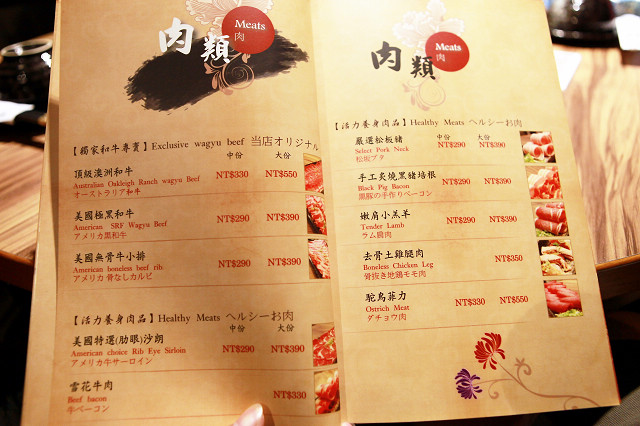 肉類
Meats
肉
【獨家和牛專賣】Exclusive wagyu beef 当店オリジナル
中份 大份
頂級澳洲和牛
Australian Oakleigh Ranch wagyu Beef NT$330 NT$550
オーストラリア和牛
美國極黑和牛
American SRF Wagyu Beef NT$290 NT$390
アメリカ黒和牛
美國無骨牛小排
American boneless beef rib NT$290 NT$390
アメリカ 骨なしカルビ
【活力養身肉品】Healthy Meats ヘルシーお肉
中份 大份
美國特選(肋眼)沙朗
American choice Rib Eye Sirloin NT$290 NT$390
アメリカ牛サーロイン
雪花牛肉
Beef bacon NT$330
牛ベーコン
肉類
Meats
肉
【活力養身肉品】Healthy Meats ヘルシーお肉
中份 大份
嚴選松板豬
Select Pork Neck NT$290 NT$390
松坂ブタ
手工炙燒黑豬培根
Black Pig Bacon NT$290 NT$390
黒豚の手作りベーコン
嫩肩小羔羊
Tender Lamb NT$290 NT$390
ラム肩肉
去骨土雞腿肉
Boneless Chicken Leg NT$350
骨抜き地鶏モモ肉
鴕鳥菲力
Ostrich Meat NT$330 NT$550
ダチョウ肉